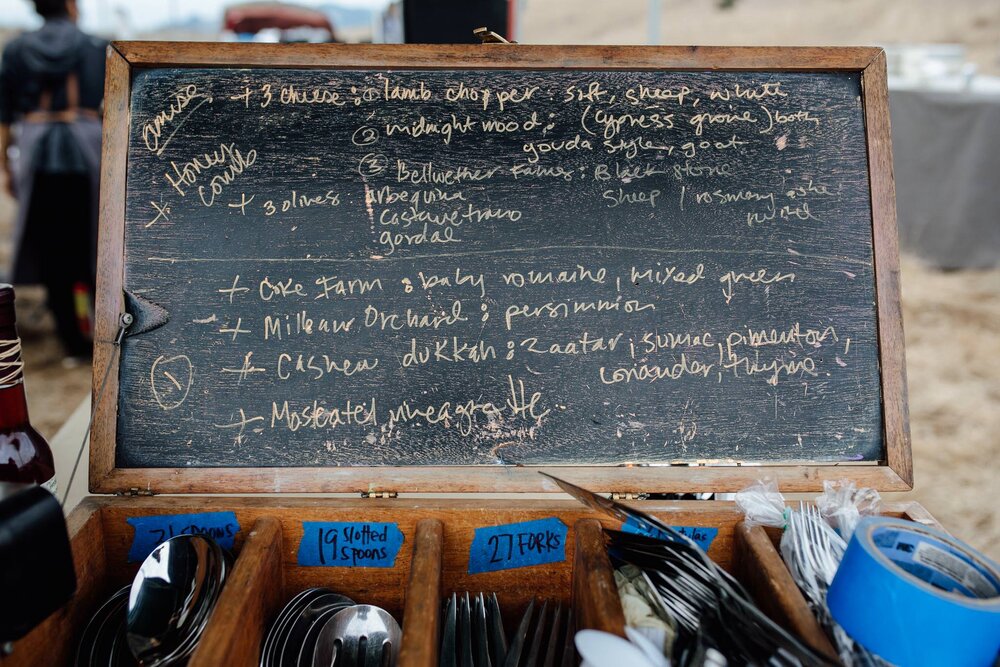 amuse
+ 3 cheese : ① lamb chopper : soft, sheep, white
② midnight moon : (cypress grove) both
gouda style, goat
Honey
comb
③ Bellwether Farms : Black stone
sheep / rosemary, ashe
+ 3 olives : arbequina
castelvetrano
gordal
+ Coke Farm : baby romaine, mixed green
+ Orchard : persimmion
①
+ Cashew dukkah : zaatar, sumac, pimenton,
coriander, thyme
+ Moscatel vinegrette
21 SPOONS
19 Slotted
spoons
27 FORKS